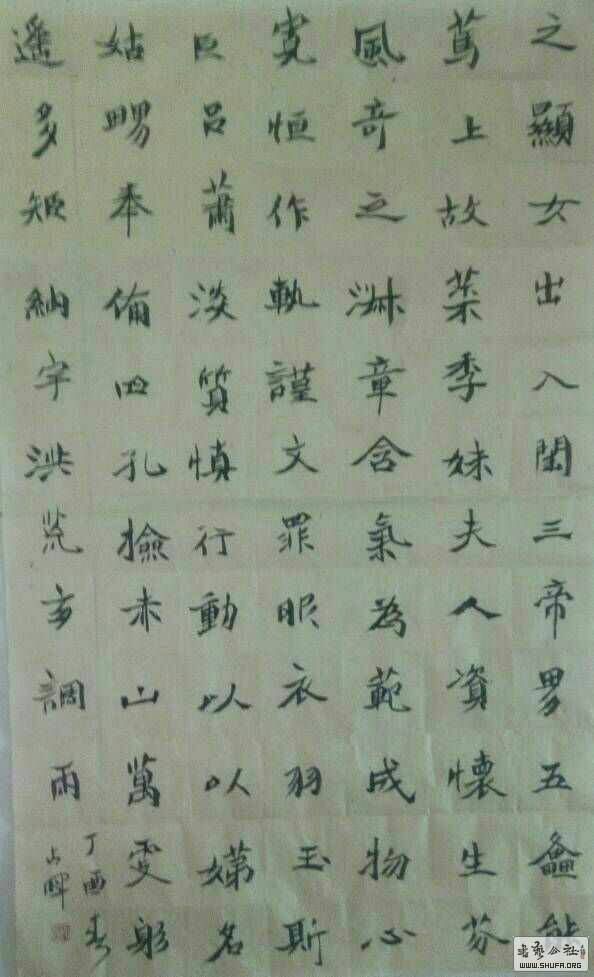 之顯女出入閨三帝男五龕能
上故葉季妹夫人資懷生芬
風奇之淋章含氣為範成物心
寬恒作執謹文罪服衣羽玉斯
臣呂蕭淡質慎行動以以娣名
姑賜奉四孔撿赤山萬雯躬
遥多矩納宇洪荒調雨
丁酉春
占暉
书艺公社
WWW.SHUFA.ORG